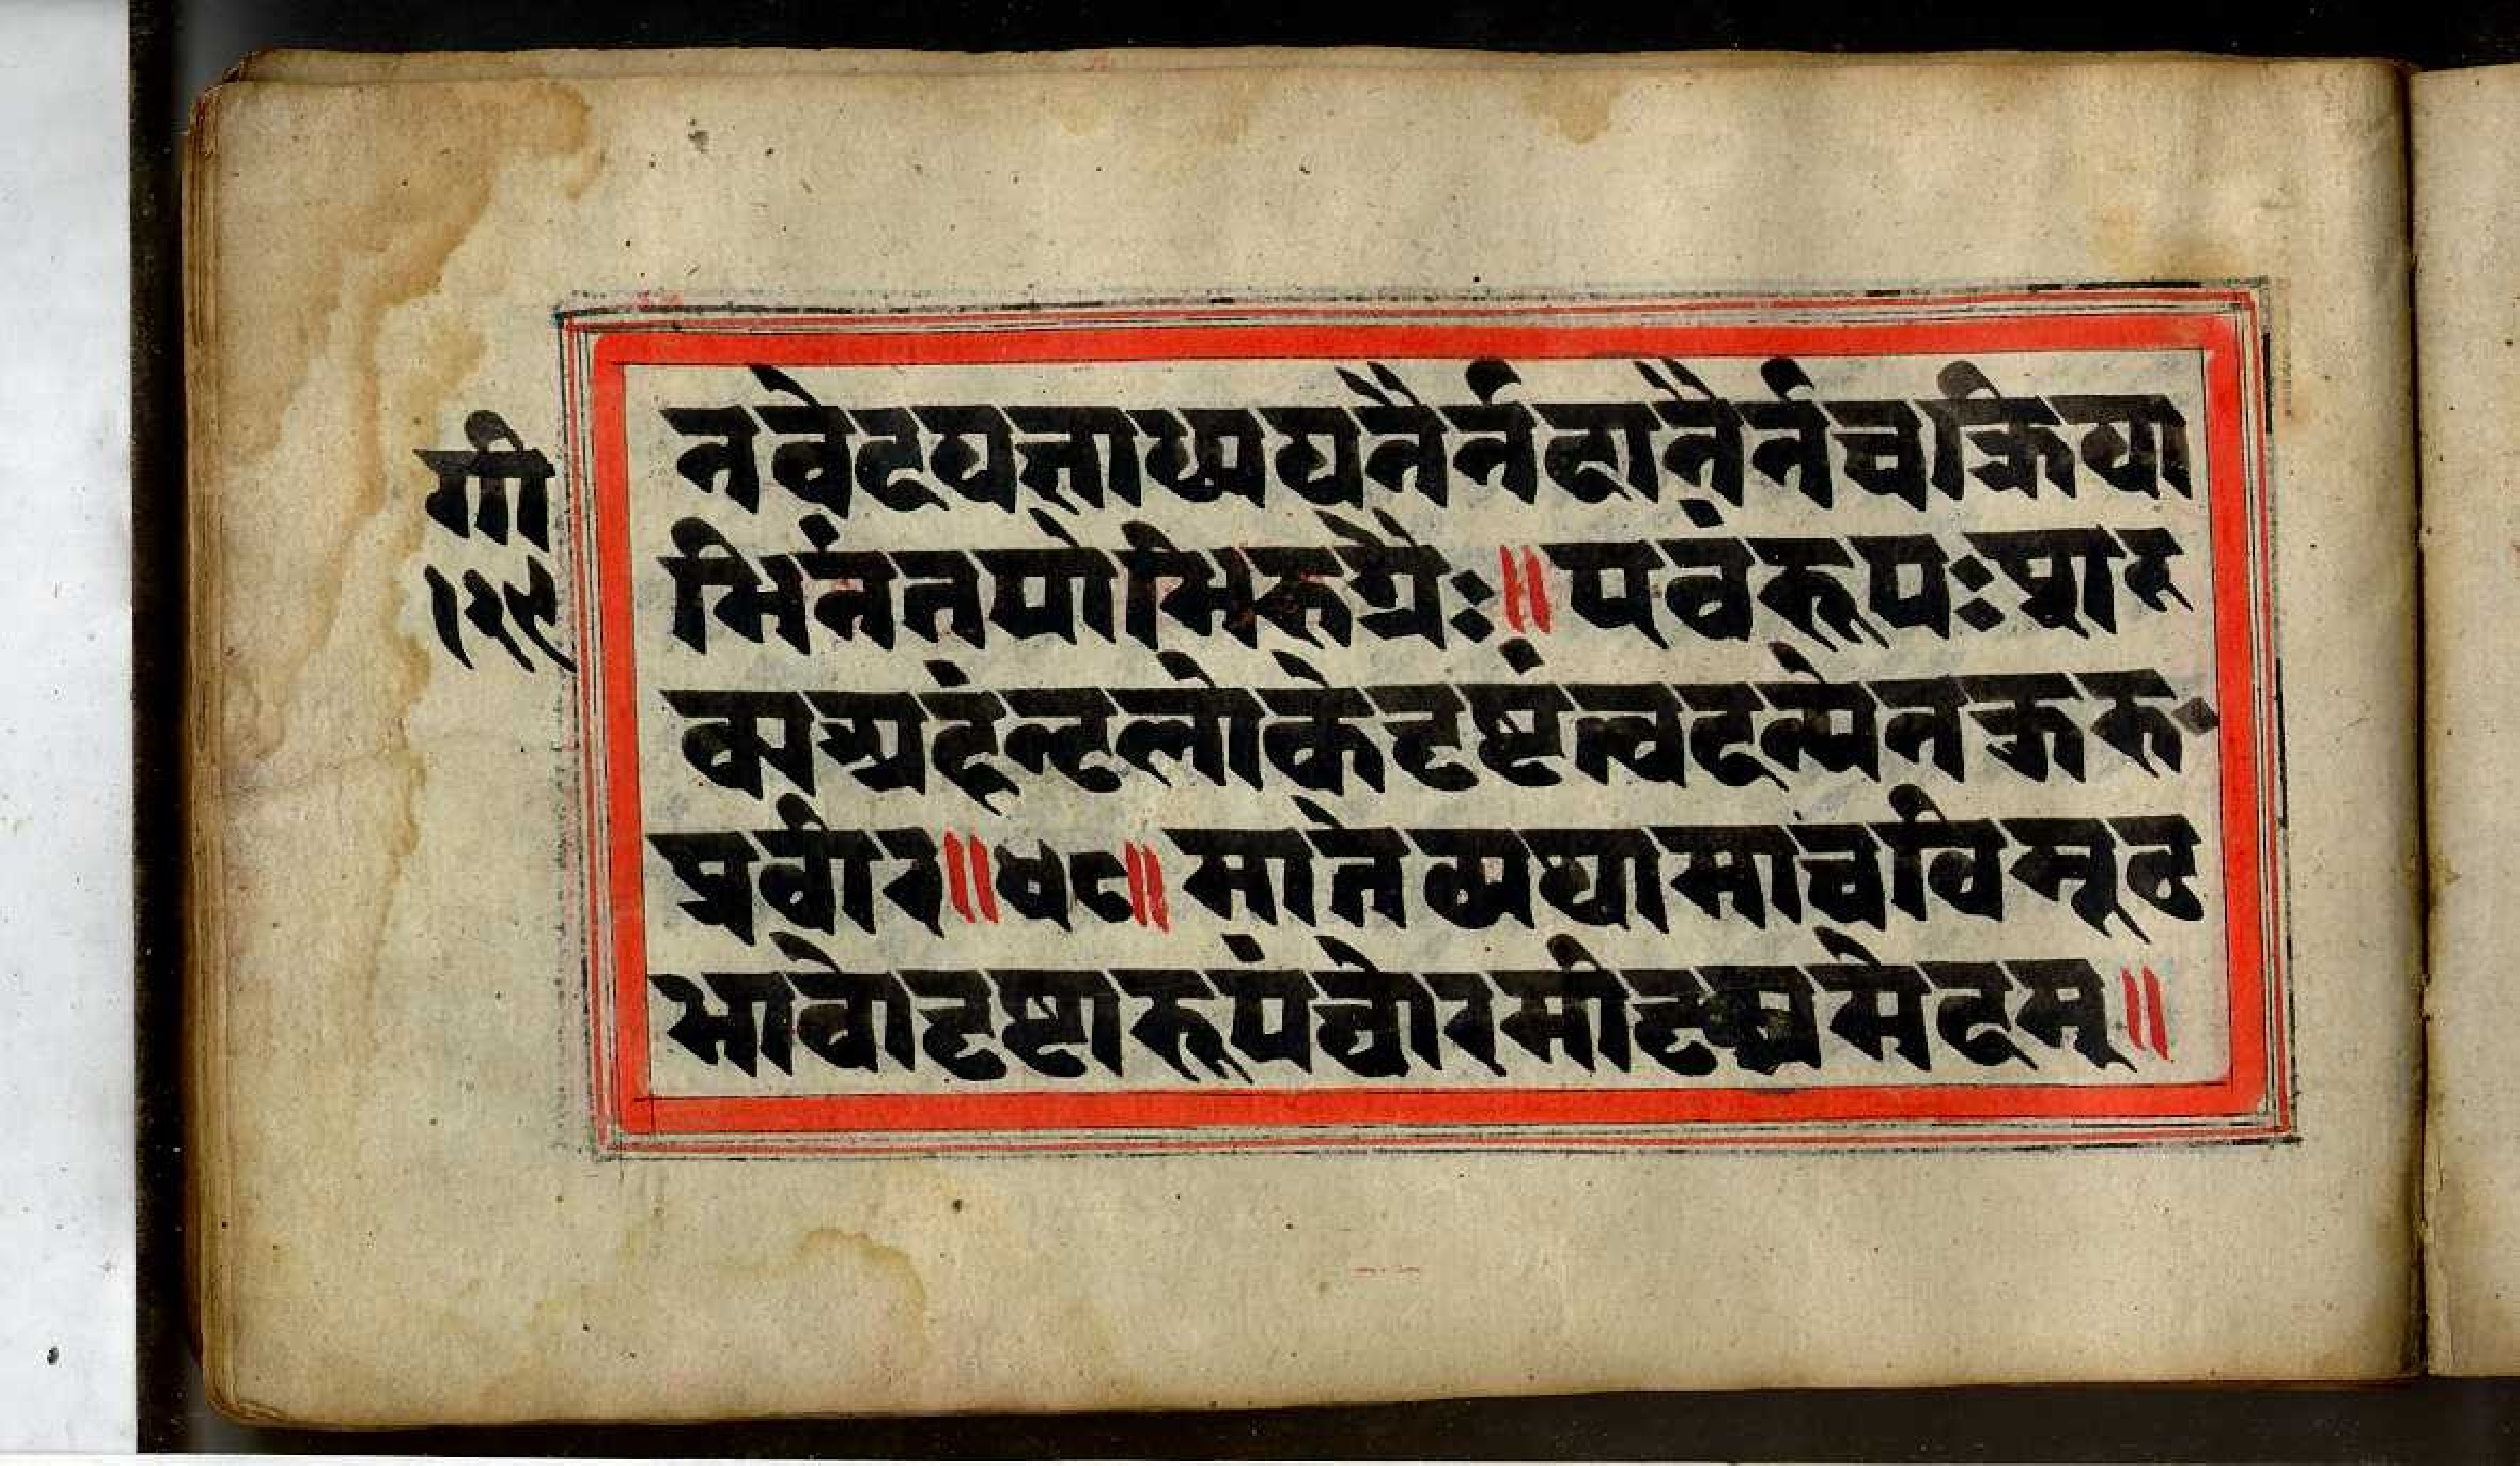 गी
१२९
नवेदयज्ञाध्ययनैर्नदानैर्नचक्रिया
भिर्नतपोभिरुग्रैः॥एवंरूपःशक्य
अहंनृलोकेद्रष्टुंत्वदन्येनकुरु
प्रवीर॥४८॥मातेव्यथामाचविमूढ
भावोदृष्ट्वारूपंघोरमीदृङ्ममेदम्॥